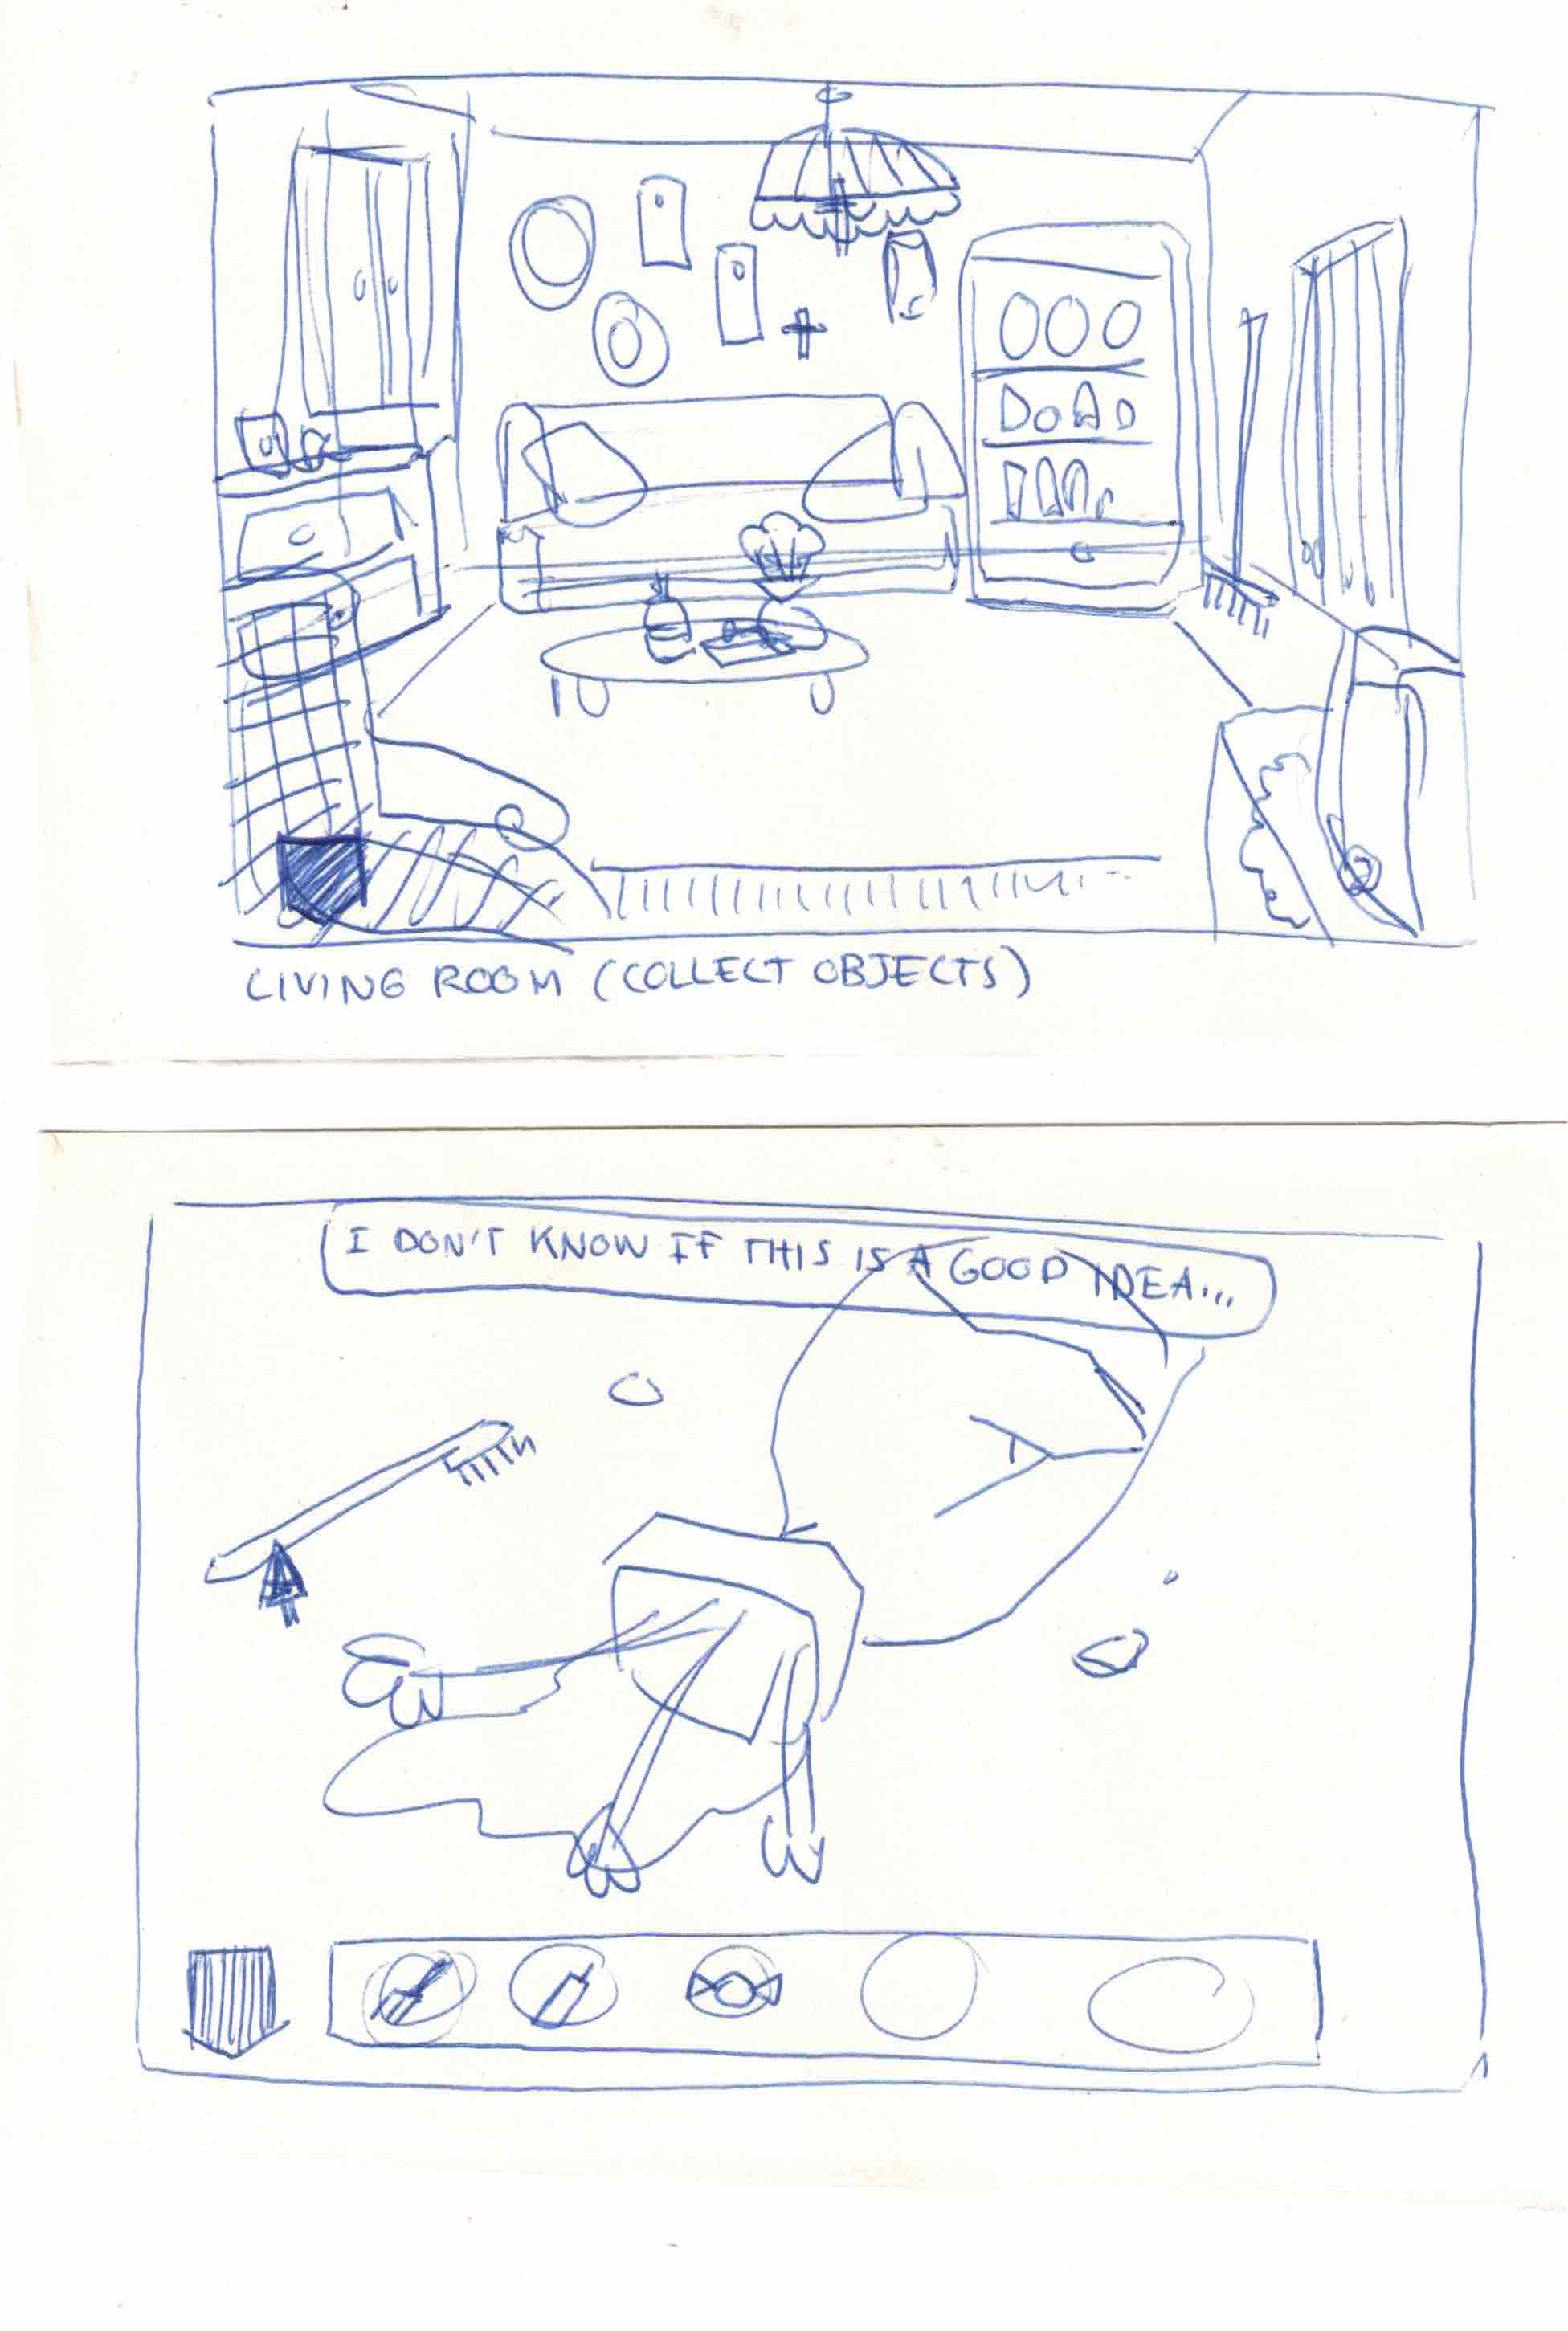 LIVING ROOM (COLLECT OBJECTS)
I DON'T KNOW IF THIS IS A GOOD IDEA...